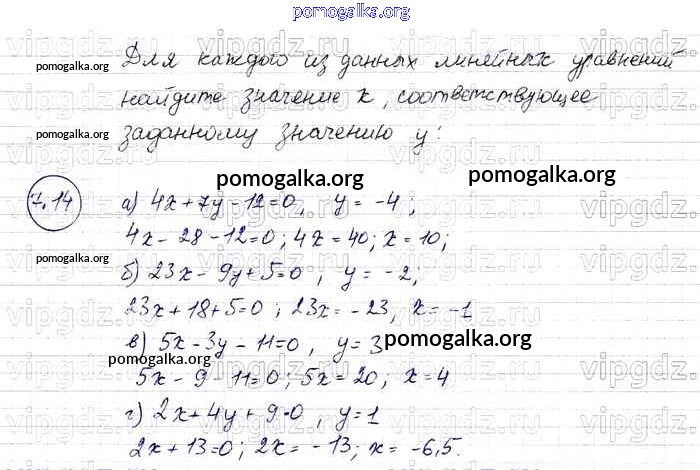 pomogalka.org
vipgdz.ru vipgdz.ru vipgdz.ru vipgdz.ru
Для каждого из данных линейных уравнений
pomogalka.org
найдите значение x, соответствующее
заданному значению y:
pomogalka.org
pomogalka.org pomogalka.org
7.14 а) 4x+7y-12=0, y = -4;
4x-28-12=0; 4x=40; x=10;
pomogalka.org
б) 23x-9y+5=0, y = -2;
23x+18+5=0; 23x=-23, x=-1
в) 5x-3y-11=0, y=3
pomogalka.org
pomogalka.org
5x-9-11=0; 5x=20; x=4
г) 2x+4y+9=0, y=1
2x+13=0; 2x=-13; x=-6,5.